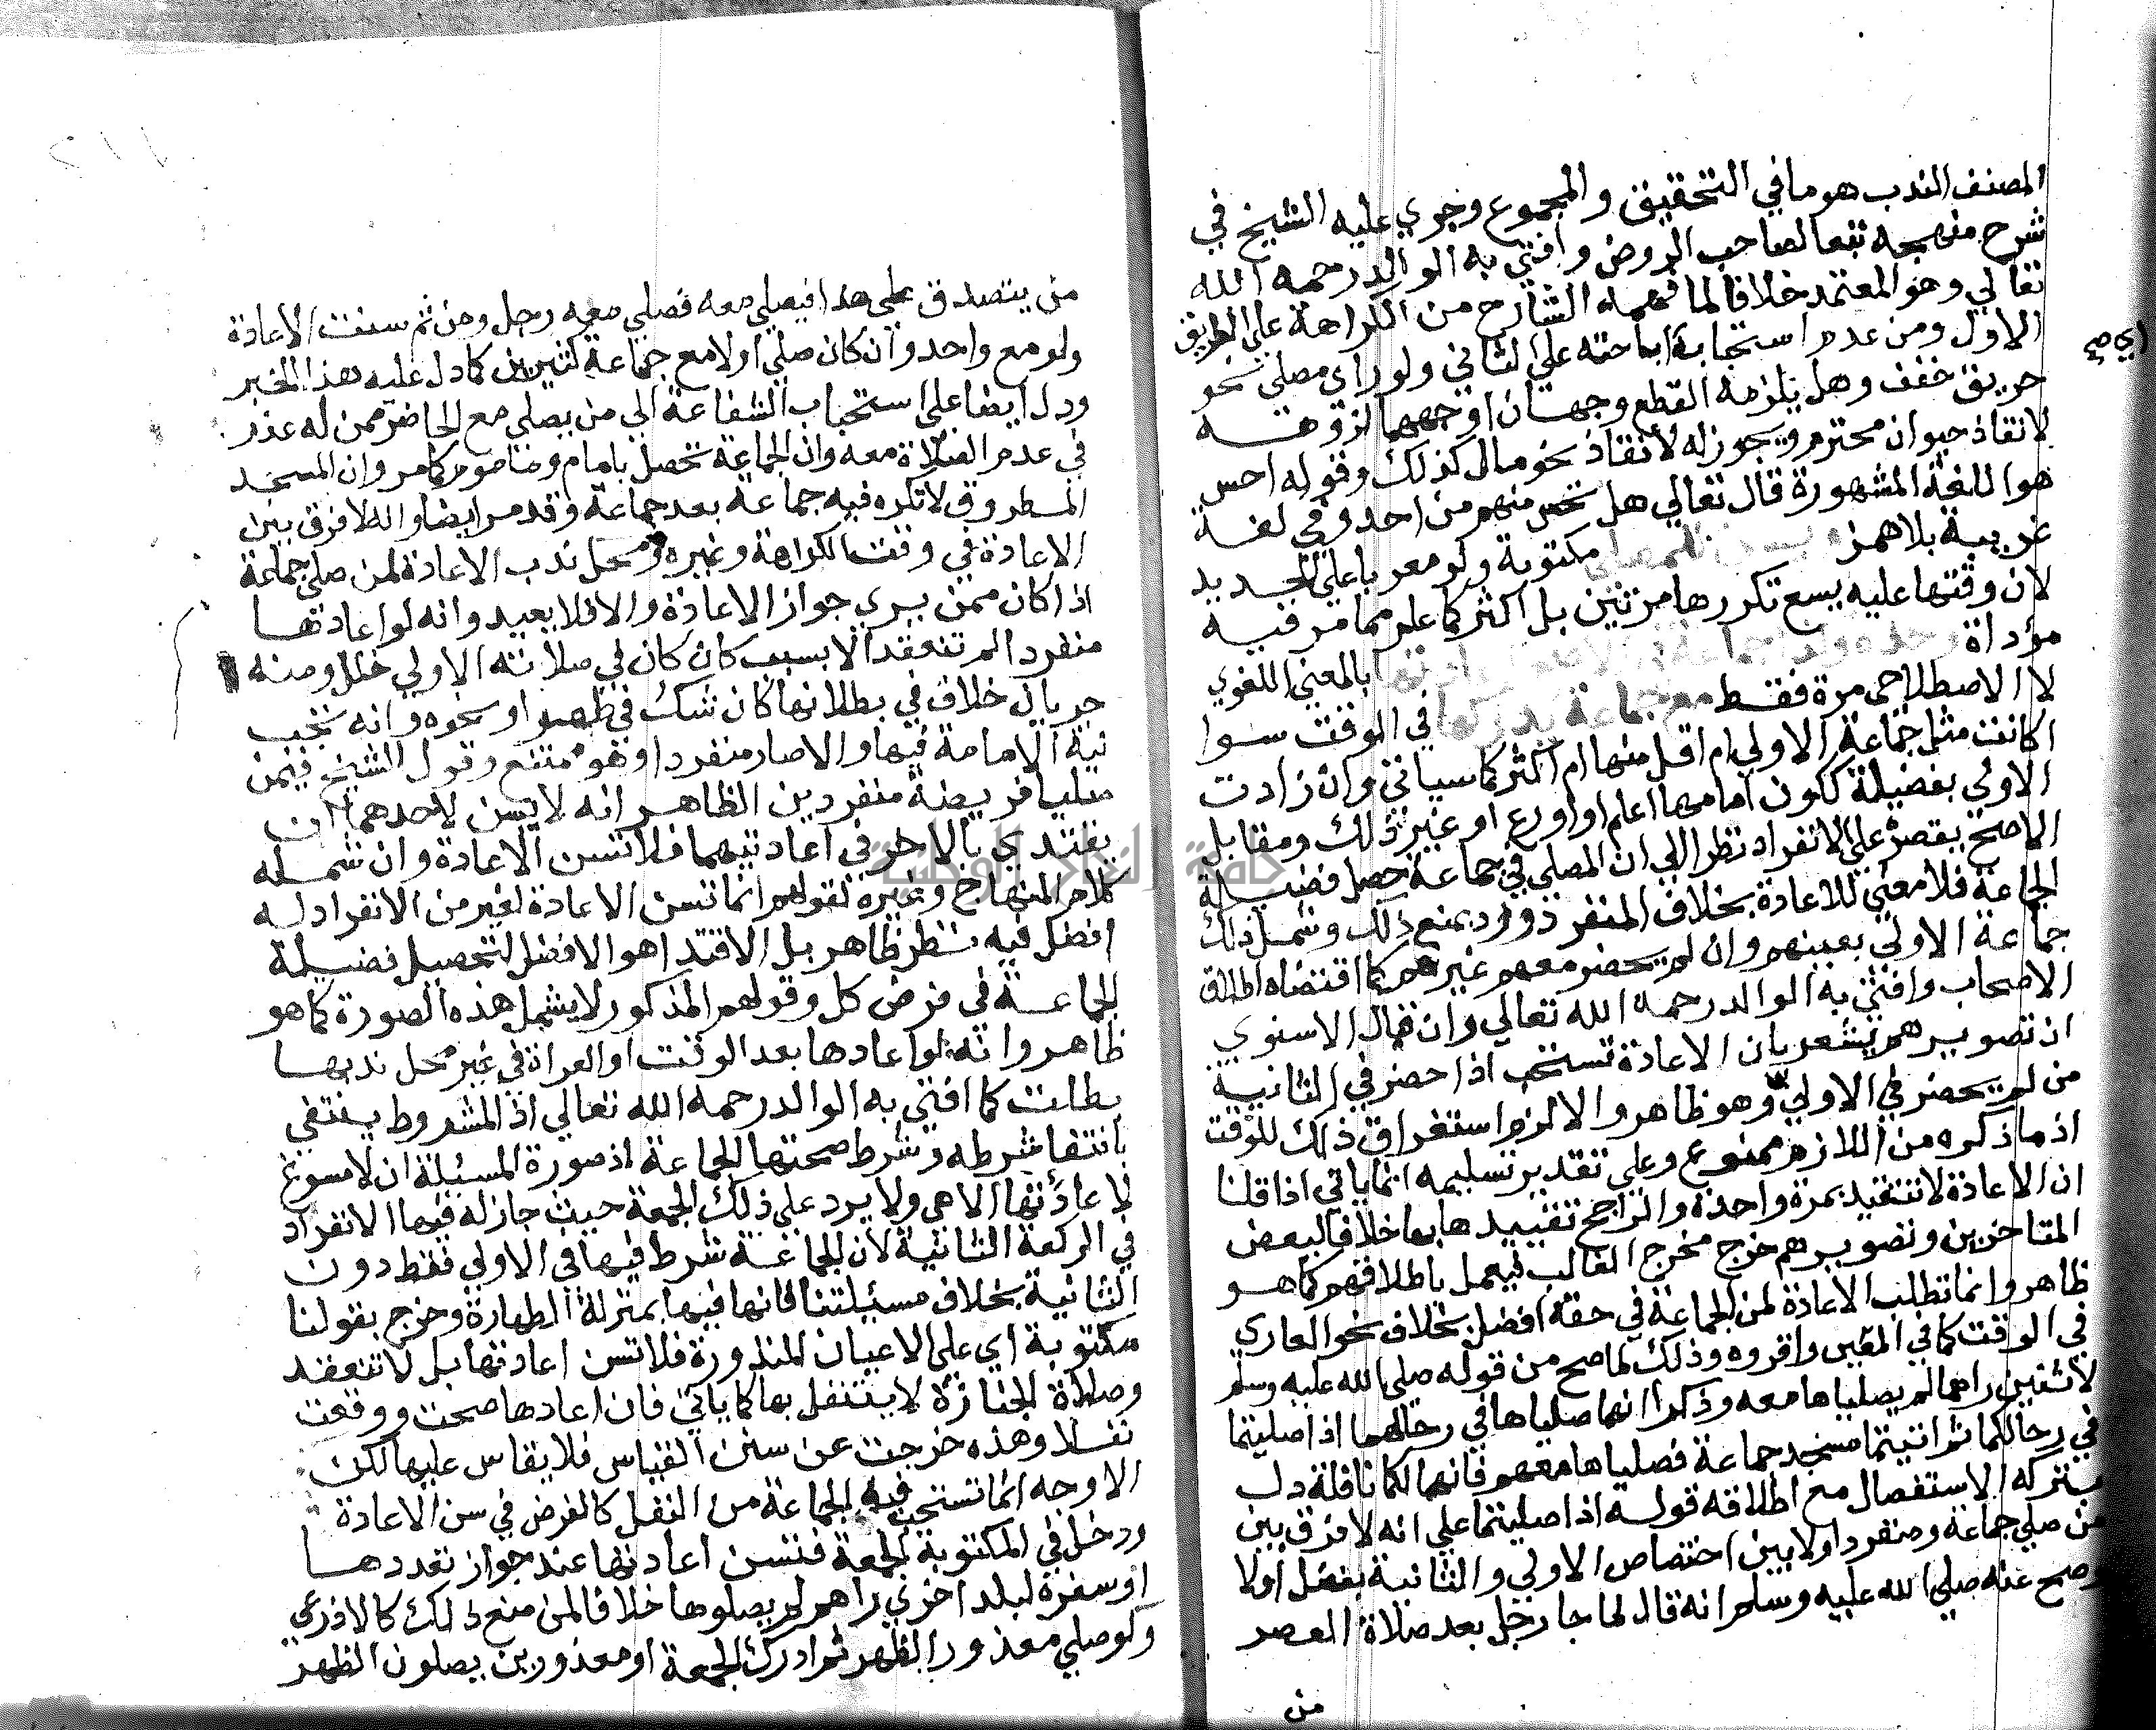 المصنف الندب هو ما في التحقيق والمجموع وجري عليه الشيخ في
شرح منهجه تبعا لصاحب الروض وافتي به الوالد رحمه الله
تعالي وهو المعتمد خلافا لما فهمه الشارح من الكراهة علي الطريق
الاول ومن عدم استحبابه اباحته علي الثاني ولو راي مصلي نحو
اي صح
حريق خفف وهل يلزمه القطع وجهان اوجههما لزومه
لانقاذ حيوان محترم ويجوز له لانقاذ نحو مال كذلك وقوله احس
هو اللغة المشهورة قال تعالي هل تحس منهم من احد وفي لغة
غريبة بلا همز ويسن للمصلي مكتوبة ولو مغربا علي الجديد
لان وقتها عليه يسع تكررها مرتين بل اكثر كما علم مما مر فيه
مؤداة وحده وكذا جماعة في الاصح اعادتها بالمعني اللغوي
لا الاصطلاحي مرة فقط مع جماعة يدركها في الوقت سوا
اكانت مثل جماعة الاولي ام اقل منها ام اكثر كما سياتي وان زادت
الاولي بفضيلة ككون امامها اعلم او اورع او غير ذلك ومقابل
الاصح يقصره علي الانفراد نظرا الي ان المصلي في جماعة حصل فضيلة
الجماعة فلا معني للاعادة بخلاف المنفرد ورد بمنع ذلك وشمل ذلك
جماعة الاولي بعينهم وان لم يحضر معهم غيرهم كما اقتضاه اطلاق
الاصحاب وافتي به الوالد رحمه الله تعالي وان قال الاسنوي
ان تصويرهم يشعر بان الاعادة تستحب اذا حضر في الثانية
من لم يحضر في الاولي وهو ظاهر والا لزم استغراق ذلك للوقت
اذ ما ذكره من اللازم ممنوع وعلي تقدير تسليمه انما ياتي اذا قلنا
ان الاعادة لا تتقيد بمرة واحدة والراجح تقييدها بها خلافا لبعض
المتاخرين وتصويرهم خرج مخرج الغالب فيعمل باطلاقهم كما هو
ظاهر وانما تطلب الاعادة لمن الجماعة في حقه افضل بخلاف نحو العاري
في الوقت كما في المعين واقروه وذلك لما صح من قوله صلي الله عليه وسلم
لاثنين راهما لم يصليا ها معه وذكرا انهما صلياها في رحالهما اذا صليتما
في رحالكما ثم اتيتما مسجد جماعة فصلياها معهم فانها لكما نافلة دل
بتركه الاستفصال مع اطلاقه قوله اذا صليتما علي انه لا فرق بين
من صلي جماعة ومنفردا ولا بين اختصاص الاولي والثانية بفضل اولا
وصح عنه صلي الله عليه وسلم انه قال لما جا رجل بعد صلاة العصر
من
من يتصدق علي هذا فيصلي معه فصلي معه رجل ومن ثم سنت الاعادة
ولو مع واحد وان كان صلي اولا مع جماعة كثيرين كما دل عليه هذا الخبر
ودل ايضا علي استحباب الشفاعة الي من يصلي مع الحاضر ممن له عذر
في عدم الصلاة معه وان الجماعة تحصل بامام وماموم كما مر وان المسجد
المطروق لا تكره فيه جماعة بعد جماعة وقد مر ايضا وانه لا فرق بين
الاعادة في وقت الكراهة وغيره ومحل ندب الاعادة لمن صلي جماعة
اذا كان ممن يري جواز الاعادة والا فلا يعيد وانه لو اعادتها
منفردا لم تنعقد الا بسبب كان كان في صلاته الاولي خلل ومنه
جريان خلاف في بطلانها كان شك في طهر او نحوه وانه تجب
نية الامامة فيها والا صار منفردا وهو ممتنع وقول الشيخ فيمن
صليا فريضة منفردين الظاهر انه لا يسن لاحدهما ان
يقتدي بالاخر في اعادتيهما فلا تسن الاعادة وان شمله
كلام المنهاج وغيره لقولهم انما تسن الاعادة لغير من الانفراد له
افضل فيه نظر ظاهر بل الاقتدا هو الافضل لتحصيل فضيلة
الجماعة في فرض كل وقولهم المذكور لا يشمل هذه الصورة كما هو
ظاهر وانه لو اعادها بعد الوقت او العراة في غير محل ندبها
بطلت كما افتي به الوالد رحمه الله تعالي اذ المشروط ينتفي
بانتفا شرطه وشرط صحتها الجماعة اذ صورة المسئلة ان لا مسوغ
لاعادتها الا هي ولا يرد علي ذلك الجمعة حيث جاز له فيها الانفراد
في الركعة الثانية لان الجماعة شرط فيها في الاولي فقط دون
الثانية بخلاف مسئلتنا فانها فيها بمنزلة الطهارة وخرج بقولنا
مكتوبة اي علي الاعيان المنذورة فلا تسن اعادتها بل لا تنعقد
وصلاة الجنازة لا يتنفل بها كما ياتي فان اعادها صحت ووقعت
نفلا وهذه خرجت عن سنن القياس فلا يقاس عليها لكن
الاوجه انما تستحب فيه الجماعة من النفل كالفرض في سن الاعادة
ودخل في المكتوبة الجمعة فتسن اعادتها عند جواز تعددها
او سفره لبلد اخري راهم لم يصلوها خلافا لمن منع ذلك كالاذرعي
ولو صلي معذور الظهر ثم ادرك الجمعة او معذورين يصلون الظهر
جامعة النجاح الوطنية